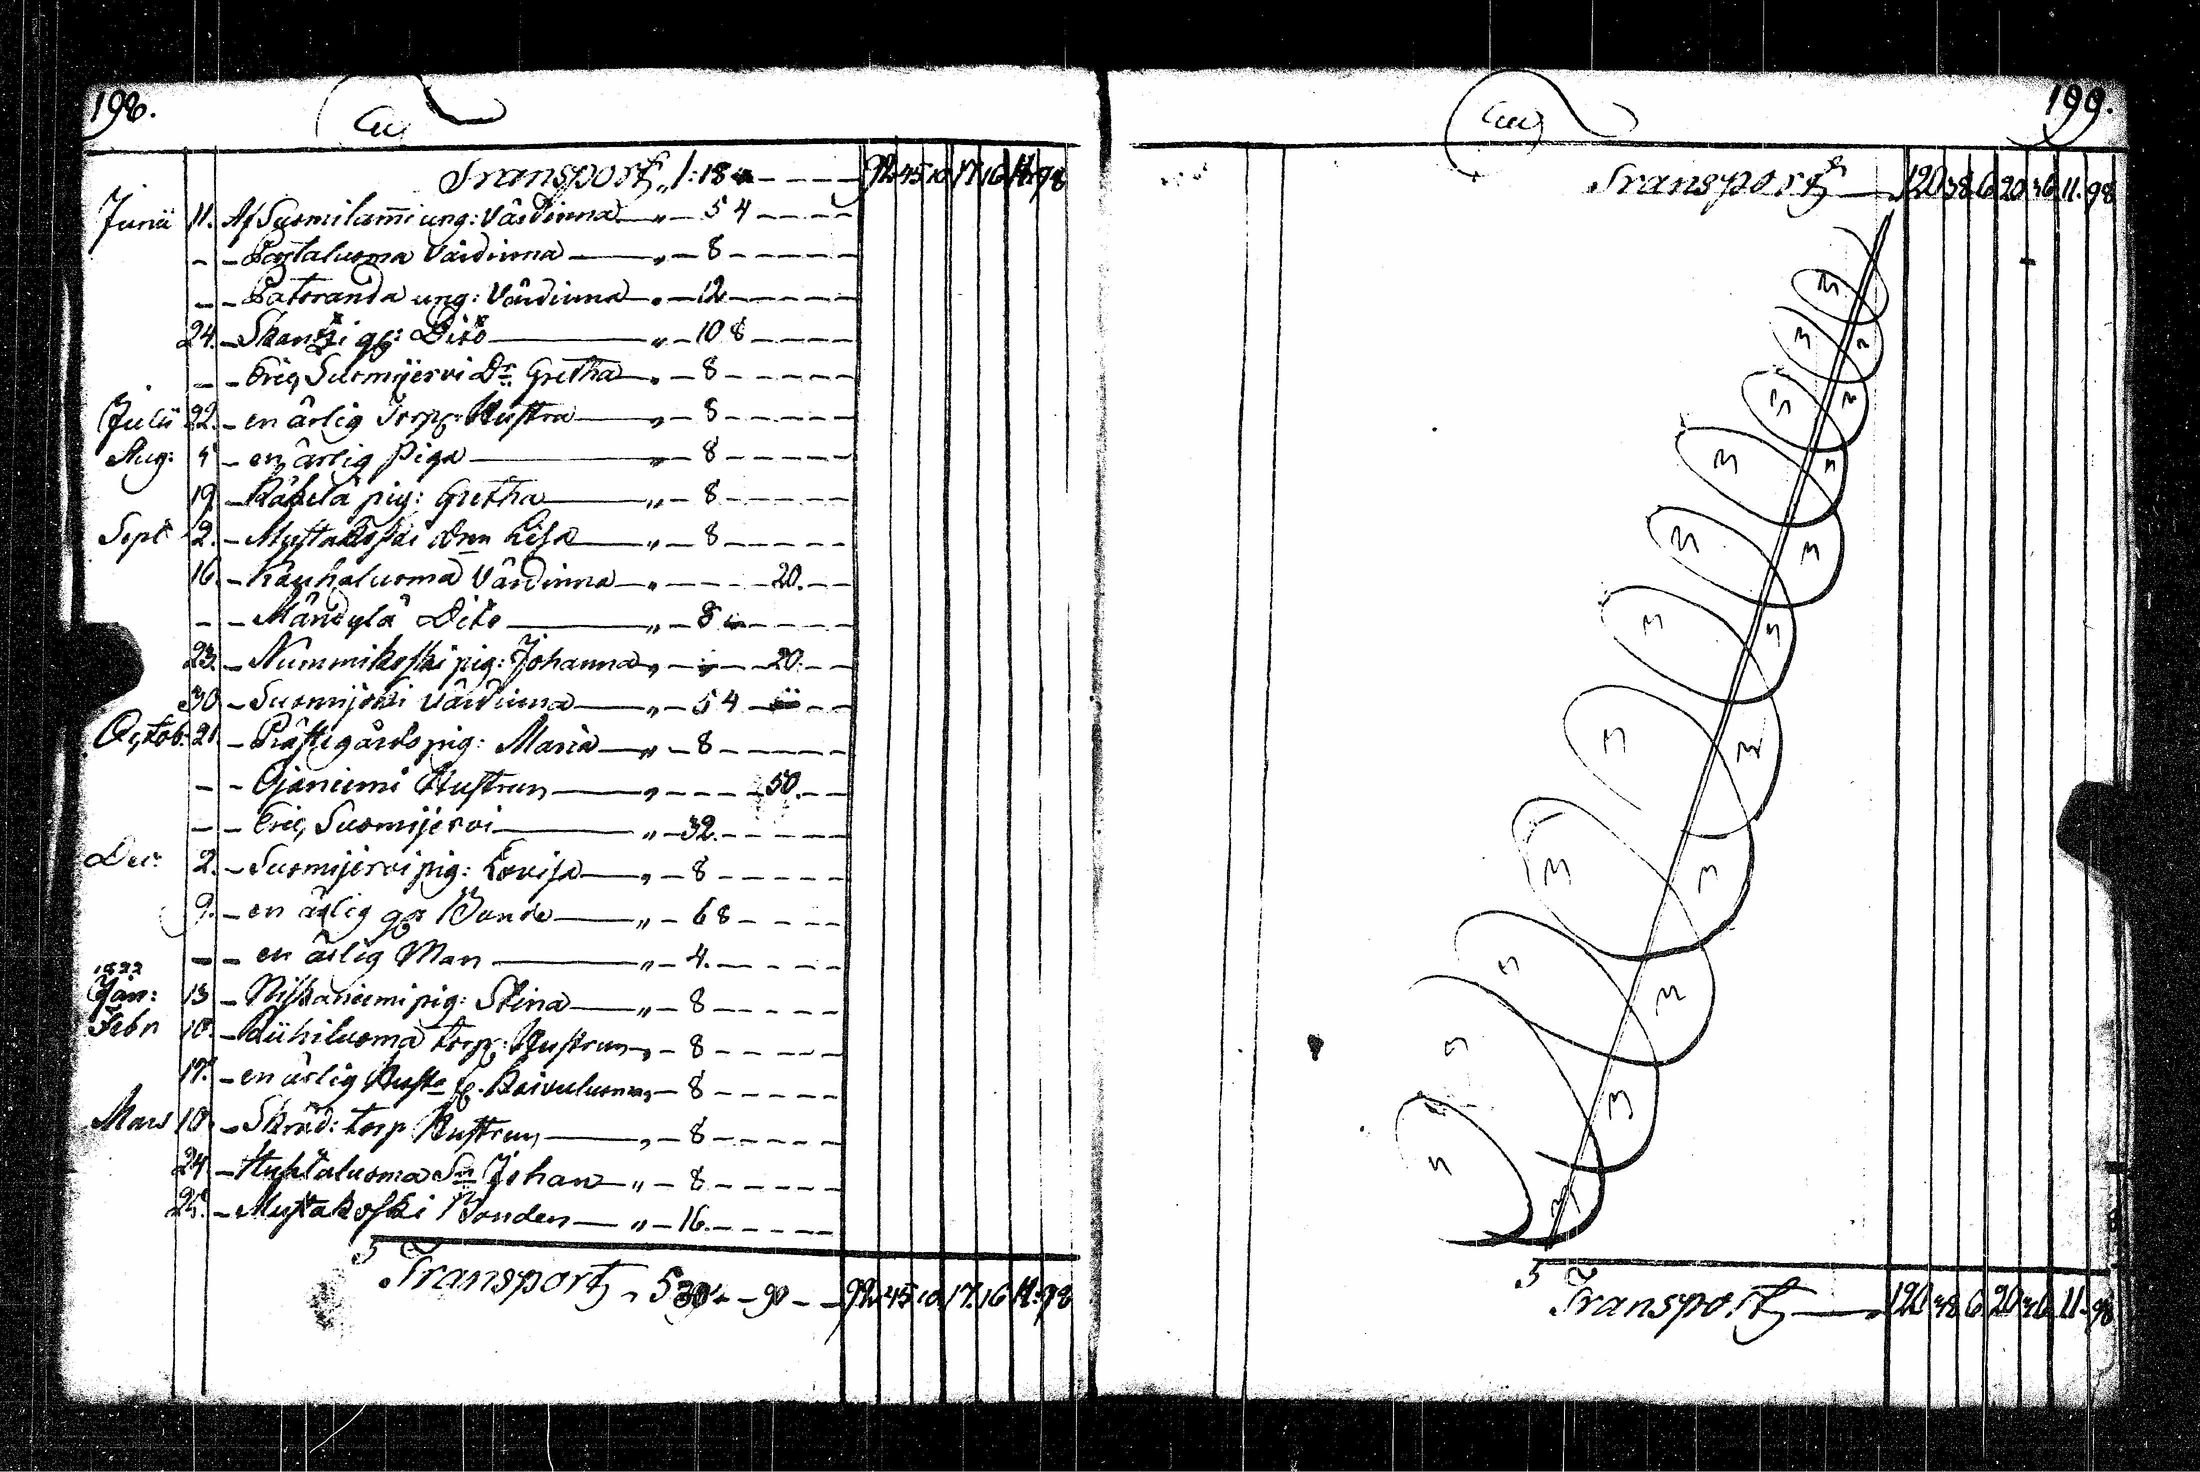 198.
Transport „ 1: 18 — 92 45 10 17 16 11. 98
Junii 11. Af Suomilami ung: Värdinna — „ — 54
— — Värdinna — „ — 8
— — Patoranda ung: Värdinna — „ — 12
24. — Skantzi Dito — „ — 108
— — Eric Suomijervi Dr. Gretha — „ — 8
Julii 22. — en ärlig Torp: Hustru — „ — 8
Aug: 5 — en ärlig Piga — „ — 8
19. — pig: Gretha — „ — 8
Sept 2. — Mustakoski Dren Lisa — „ — 8
16. — Kauhaluoma Värdinna — „ — 20.
— — Mändylä Dito — „ — 8
23. — Nummikoski pig: Johanna „ — 20.
30 — Suomijoki Värdinna — „ — 54
Octob: 21. — Prästegårds pig: Maria — „ — 8
— — Ojaniemi Hustrun — „ — 50.
— — Eric Suomijervi — „ — 32.
Dec: 2. — Suomijervi pig: Lovisa — „ — 8
9. — en ärlig Bonde — „ — 68
— — en ärlig Man — „ — 4.
1822
Jan: 13 — Niskaniemi pig: Stina — „ — 8
Febr 10. — Riihiluoma torp: Hustrun „ — 8
17. — en ärlig Hust. „ — 8
Mars 10. — Skräd: torp Hustrun — „ — 8
24 — Huhtaluoma Sn Johan — „ — 8
25. — Mustakoski Bonden — „ — 16.
Transport „ 5 — 90 — 92 45 10 17. 16 11. 98
199.
Transport — 120 38 6 20 36 11. 98
3 3 3 3 3 3 3 3 3 3 3 3 3 3 3 3 3 3 3 3 3 3 3
Transport — 120 38 6 20 36 11. 98